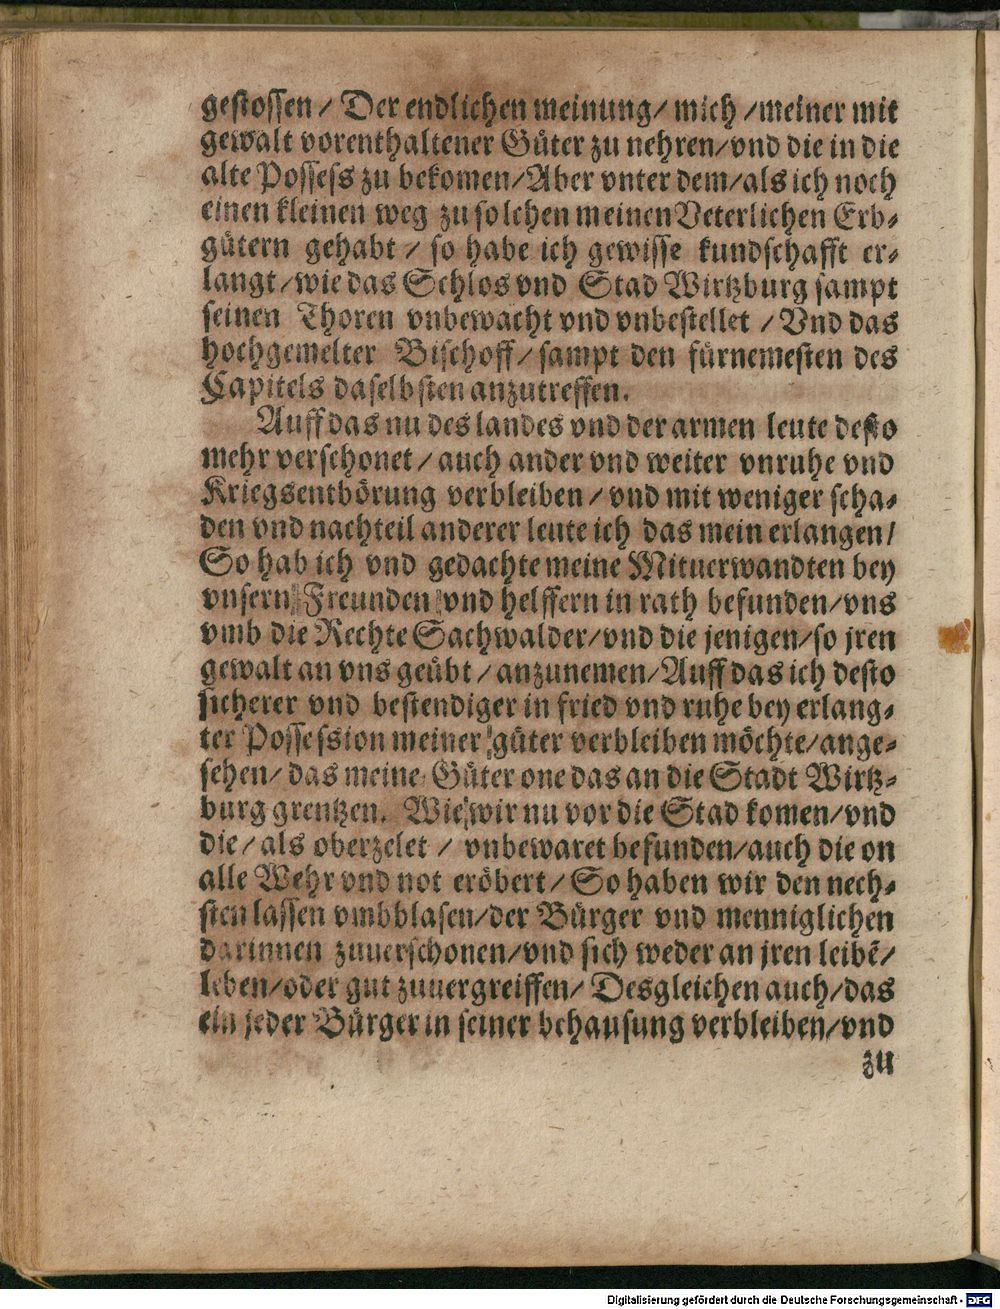 gestossen / Der endlichen meinung / mich / meiner mit
gewalt vorenthaltener Güter zu nehren / vnd die in die
alte Possess zu bekomen / Aber vnter dem / als ich noch
einen kleinen weg zu solchen meinen Veterlichen Erb-
gütern gehabt / so habe ich gewisse kundschafft er-
langt / wie das Schlos vnd Stad Wirtzburg sampt
seinen Thoren vnbewacht vnd vnbestellet / Vnd das
hochgemelter Bischoff / sampt den fürnemesten des
Capitels daselbsten anzutreffen.
Auff das nu des landes vnd der armen leute desto
mehr verschonet / auch ander vnd weiter vnruhe vnd
Kriegsentbörung verbleiben / vnd mit weniger scha-
den vnd nachteil anderer leute ich das mein erlangen /
So hab ich vnd gedachte meine Mituerwandten bey
vnsern Freunden vnd helffern in rath befunden / vns
vmb die Rechte Sachwalder / vnd die jenigen / so jren
gewalt an vns geübt / anzunemen / Auff das ich desto
sicherer vnd bestendiger in fried vnd ruhe bey erlang-
ter Possession meiner güter verbleiben möchte / ange-
sehen / das meine Güter one das an die Stadt Wirtz-
burg grentzen. Wie wir nu vor die Stad komen / vnd
die / als oberzelet / vnbewaret befunden / auch die on
alle Wehr vnd not eröbert / So haben wir den nech-
sten lassen vmbblasen / der Bürger vnd menniglichen
darinnen zuuerschonen / vnd sich weder an jren leibē /
leben / oder gut zuuergreiffen / Desgleichen auch / das
ein jeder Bürger in seiner behausung verbleiben / vnd
zu
Digitalisierung gefördert durch die Deutsche Forschungsgemeinschaft - DFG